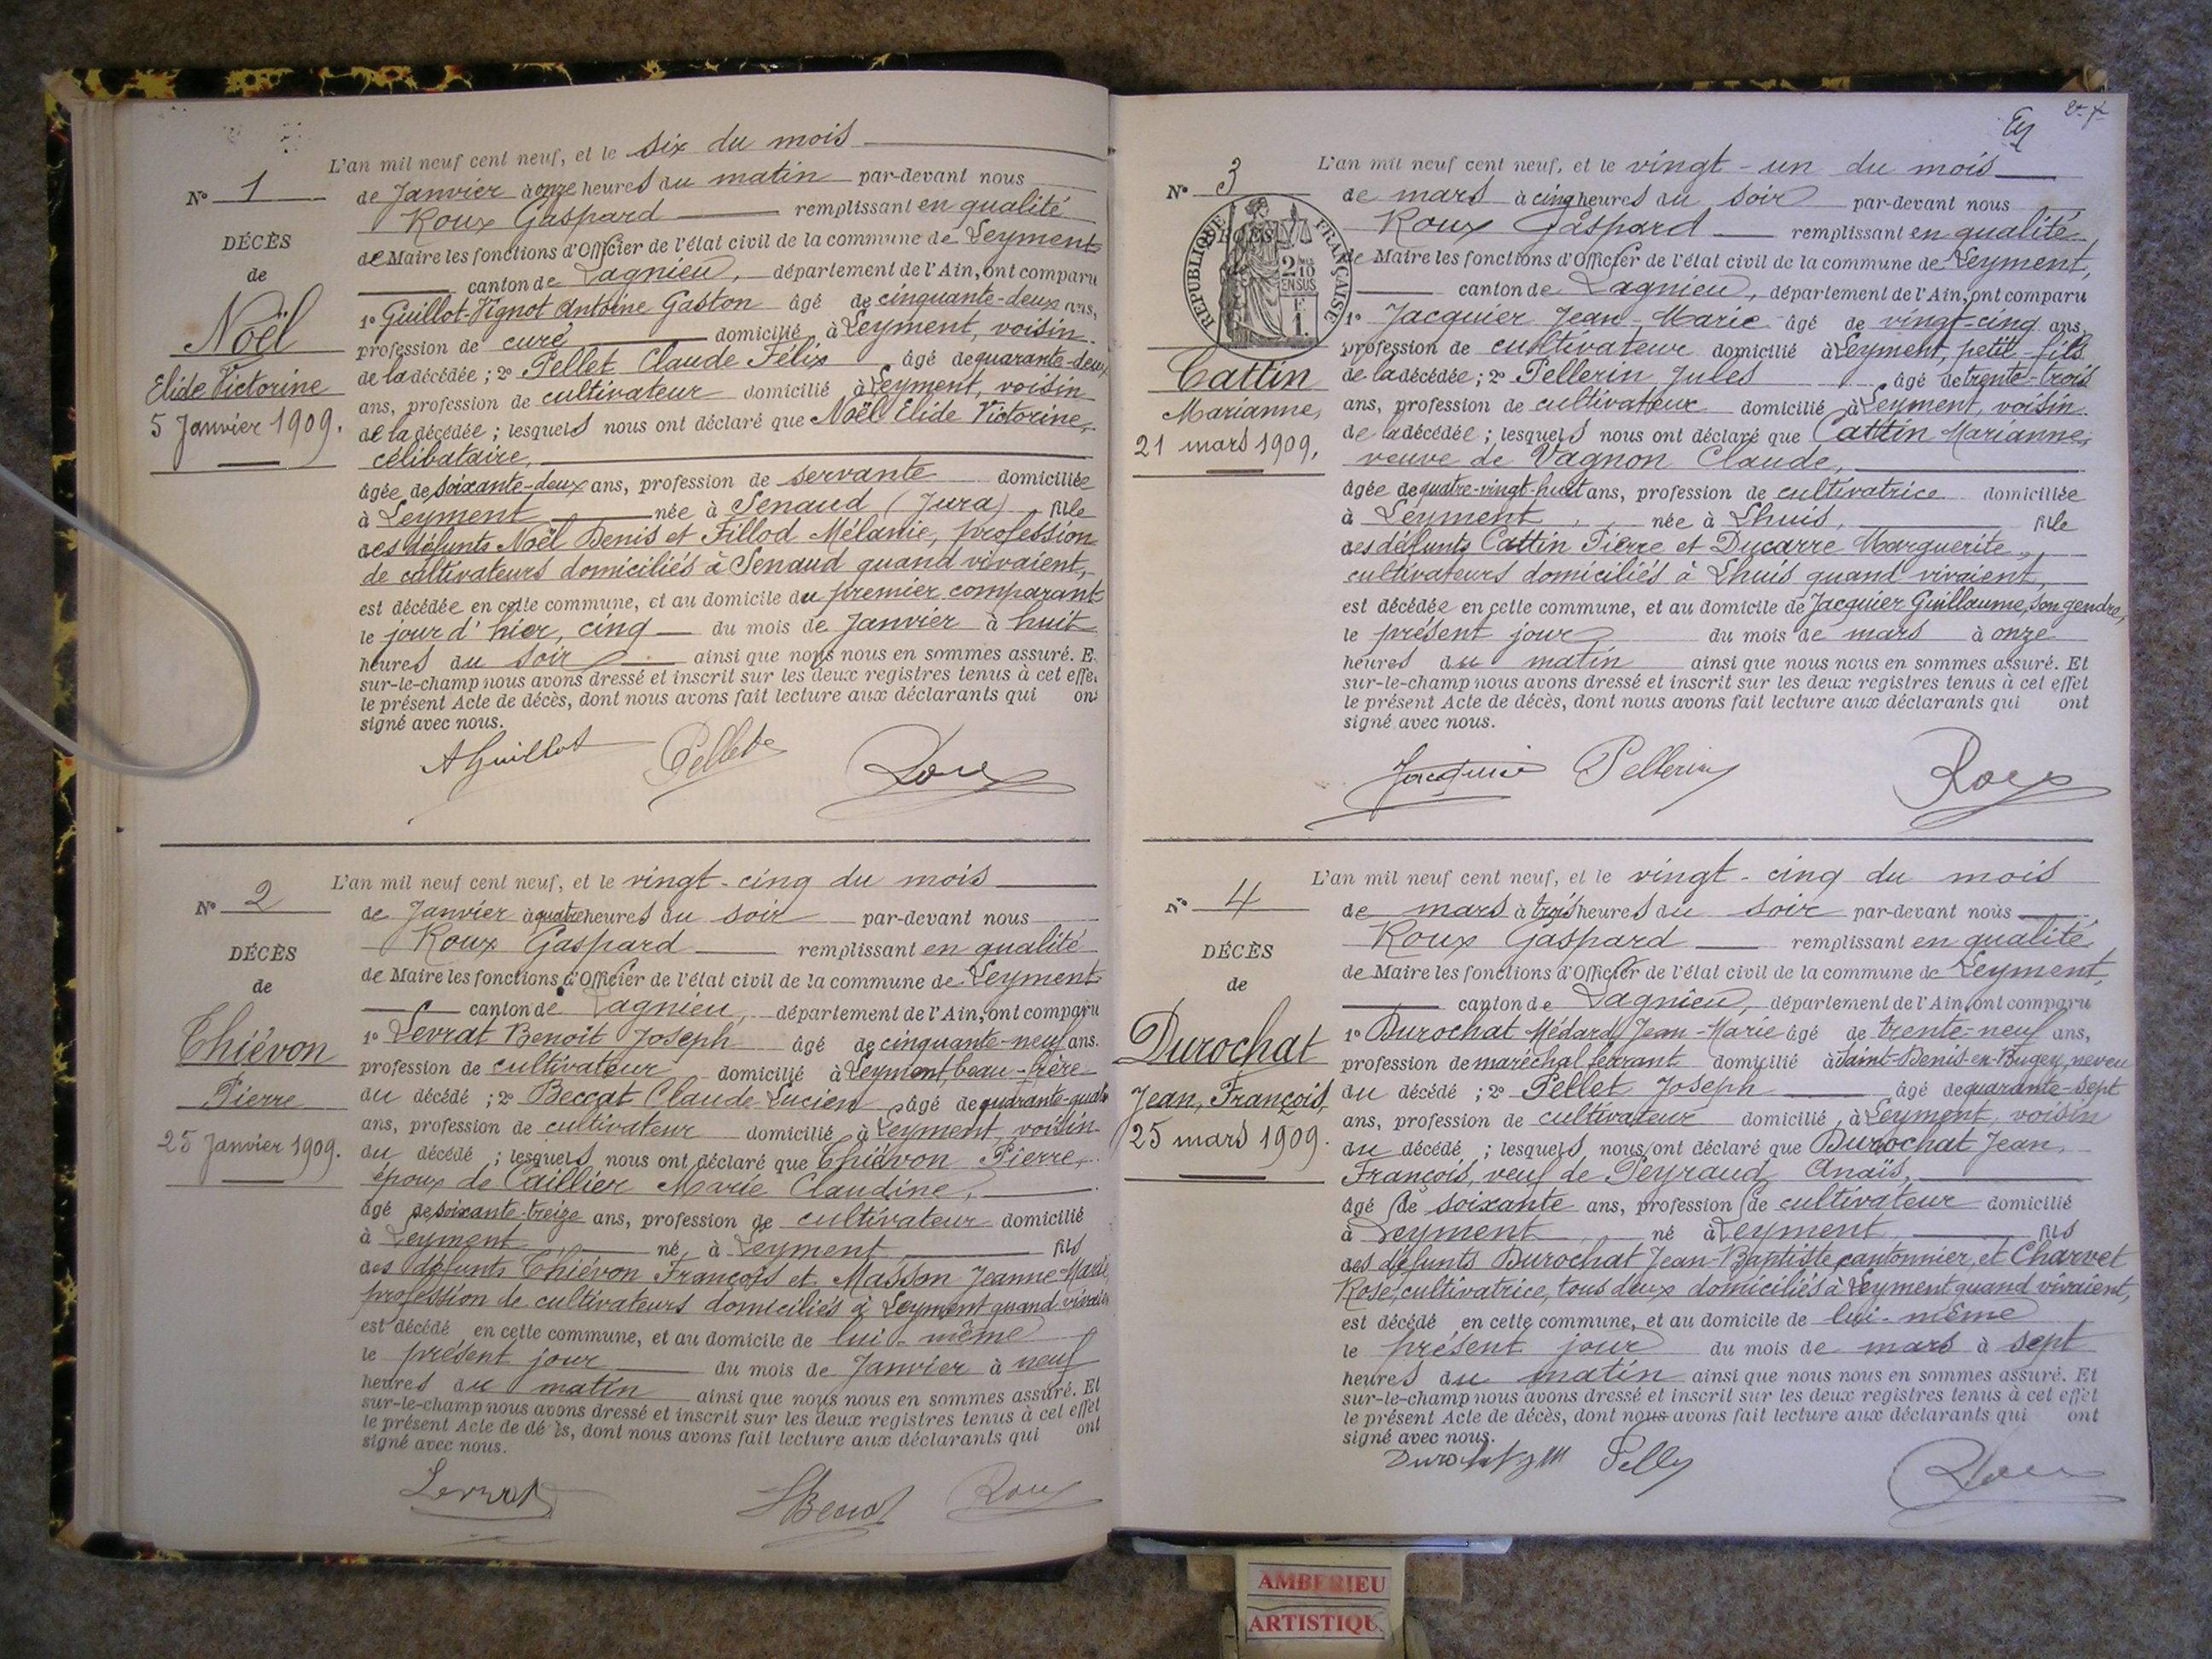 L'an mil neuf cent neuf, et le six du mois
N° 1
de Janvier à onze heures du matin par-devant nous
Roux Gaspard remplissant en qualité
DÉCÈS
de Maire les fonctions d'Officier de l'état civil de la commune de Leyment
de
canton de Lagnieu, département de l'Ain, ont comparu
1° Guillot-Vignot Antoine Gaston âgé de cinquante-deux ans,
Noël
profession de curé domicilié à Leyment, voisin
de la décédée ; 2° Pellet Claude Félix âgé de quarante-deux
Elide Victorine
ans, profession de cultivateur domicilié à Leyment, voisin
5 Janvier 1909.
de la décédée ; lesquels nous ont déclaré que Noël Elide Victorine,
célibataire,
âgée de soixante-deux ans, profession de servante domiciliée
à Leyment née à Senaud (Jura) fille
des défunts Noël Denis et Fillod Mélanie, profession
de cultivateurs domiciliés à Senaud quand vivaient,
est décédée en cette commune, et au domicile du premier comparant
le jour d'hier, cinq du mois de Janvier à huit
heures du soir ainsi que nous nous en sommes assuré. E
sur-le-champ nous avons dressé et inscrit sur les deux registres tenus à cet effe
le présent Acte de décès, dont nous avons fait lecture aux déclarants qui ont
signé avec nous.
AGuillot Pellet Roux
L'an mil neuf cent neuf, et le vingt-cinq du mois
N° 2
de Janvier à quatre heures du soir par-devant nous
Roux Gaspard remplissant en qualité
DÉCÈS
de Maire les fonctions d'Officier de l'état civil de la commune de Leyment
de
canton de Lagnieu, département de l'Ain, ont comparu
1° Levrat Benoit Joseph âgé de cinquante-neuf ans.
Thiévon
profession de cultivateur domicilié à Leyment, beau-frère
Pierre
du décédé ; 2° Beccat Claude-Lucien âgé de quarante-quatre
ans, profession de cultivateur domicilié à Leyment, voisin
25 Janvier 1909.
du décédé ; lesquels nous ont déclaré que Thiévon Pierre,
époux de Caillier Marie Claudine,
âgé de soixante-treize ans, profession de cultivateur domicilié
à Leyment né à Leyment fils
des défunts Thiévon François et Masson Jeanne-Marie,
profession de cultivateurs domiciliés à Leyment quand vivaient
est décédé en cette commune, et au domicile de lui-même
le présent jour du mois de Janvier à neuf
heures du matin ainsi que nous nous en sommes assuré. Et
sur-le-champ nous avons dressé et inscrit sur les deux registres tenus à cet effet
le présent Acte de décès, dont nous avons fait lecture aux déclarants qui ont
signé avec nous.
Levrat Roux
L'an mil neuf cent neuf, et le vingt-un du mois
N° 3
de mars à cinq heures du soir par-devant nous
Roux Gaspard remplissant en qualité
RÉPUBLIQUE FRANÇAISE
2/10 EN SUS
1 F
de Maire les fonctions d'Officier de l'état civil de la commune de Leyment,
canton de Lagnieu, département de l'Ain, ont comparu
1° Jacquier Jean-Marie âgé de vingt-cinq ans,
profession de cultivateur domicilié à Leyment, petit-fils
Cattin
de la décédée ; 2° Pellerin Jules âgé de trente-trois
Marianne,
ans, profession de cultivateur domicilié à Leyment, voisin
21 mars 1909,
de la décédée ; lesquels nous ont déclaré que Cattin Marianne,
veuve de Vagnon Claude,
âgée de quatre-vingt-huit ans, profession de cultivatrice domiciliée
à Leyment, née à Lhuis, fille
des défunts Cattin Pierre et Ducarre Marguerite,
cultivateurs domiciliés à Lhuis quand vivaient,
est décédée en cette commune, et au domicile de Jacquier Guillaume, son gendre,
le présent jour du mois de mars à onze
heures du matin ainsi que nous nous en sommes assuré. Et
sur-le-champ nous avons dressé et inscrit sur les deux registres tenus à cet effet
le présent Acte de décès, dont nous avons fait lecture aux déclarants qui ont
signé avec nous.
Jacquier Pellerin Roux
L'an mil neuf cent neuf, et le vingt-cinq du mois
N° 4
de mars à trois heures du soir par-devant nous
Roux Gaspard remplissant en qualité
DÉCÈS
de Maire les fonctions d'Officier de l'état civil de la commune de Leyment,
de
canton de Lagnieu, département de l'Ain, ont comparu
1° Durochat Médard Jean-Marie âgé de trente-neuf ans,
Durochat
profession de maréchal ferrant domicilié à Saint-Denis-en-Bugey, neveu
Jean, François,
du décédé ; 2° Pellet Joseph âgé de quarante-sept
ans, profession de cultivateur domicilié à Leyment, voisin
25 mars 1909.
du décédé ; lesquels nous ont déclaré que Durochat Jean,
François, veuf de Peyraud Anaïs,
âgé de soixante ans, profession de cultivateur domicilié
à Leyment né à Leyment fils
des défunts Durochat Jean-Baptiste cantonnier, et Charvet
Rose, cultivatrice, tous deux domiciliés à Leyment quand vivaient,
est décédé en cette commune, et au domicile de lui-même
le présent jour du mois de mars à sept
heures du matin ainsi que nous nous en sommes assuré. Et
sur-le-champ nous avons dressé et inscrit sur les deux registres tenus à cet effet
le présent Acte de décès, dont nous avons fait lecture aux déclarants qui ont
signé avec nous.
Durochat Roux
AMBERIEU
ARTISTIQU